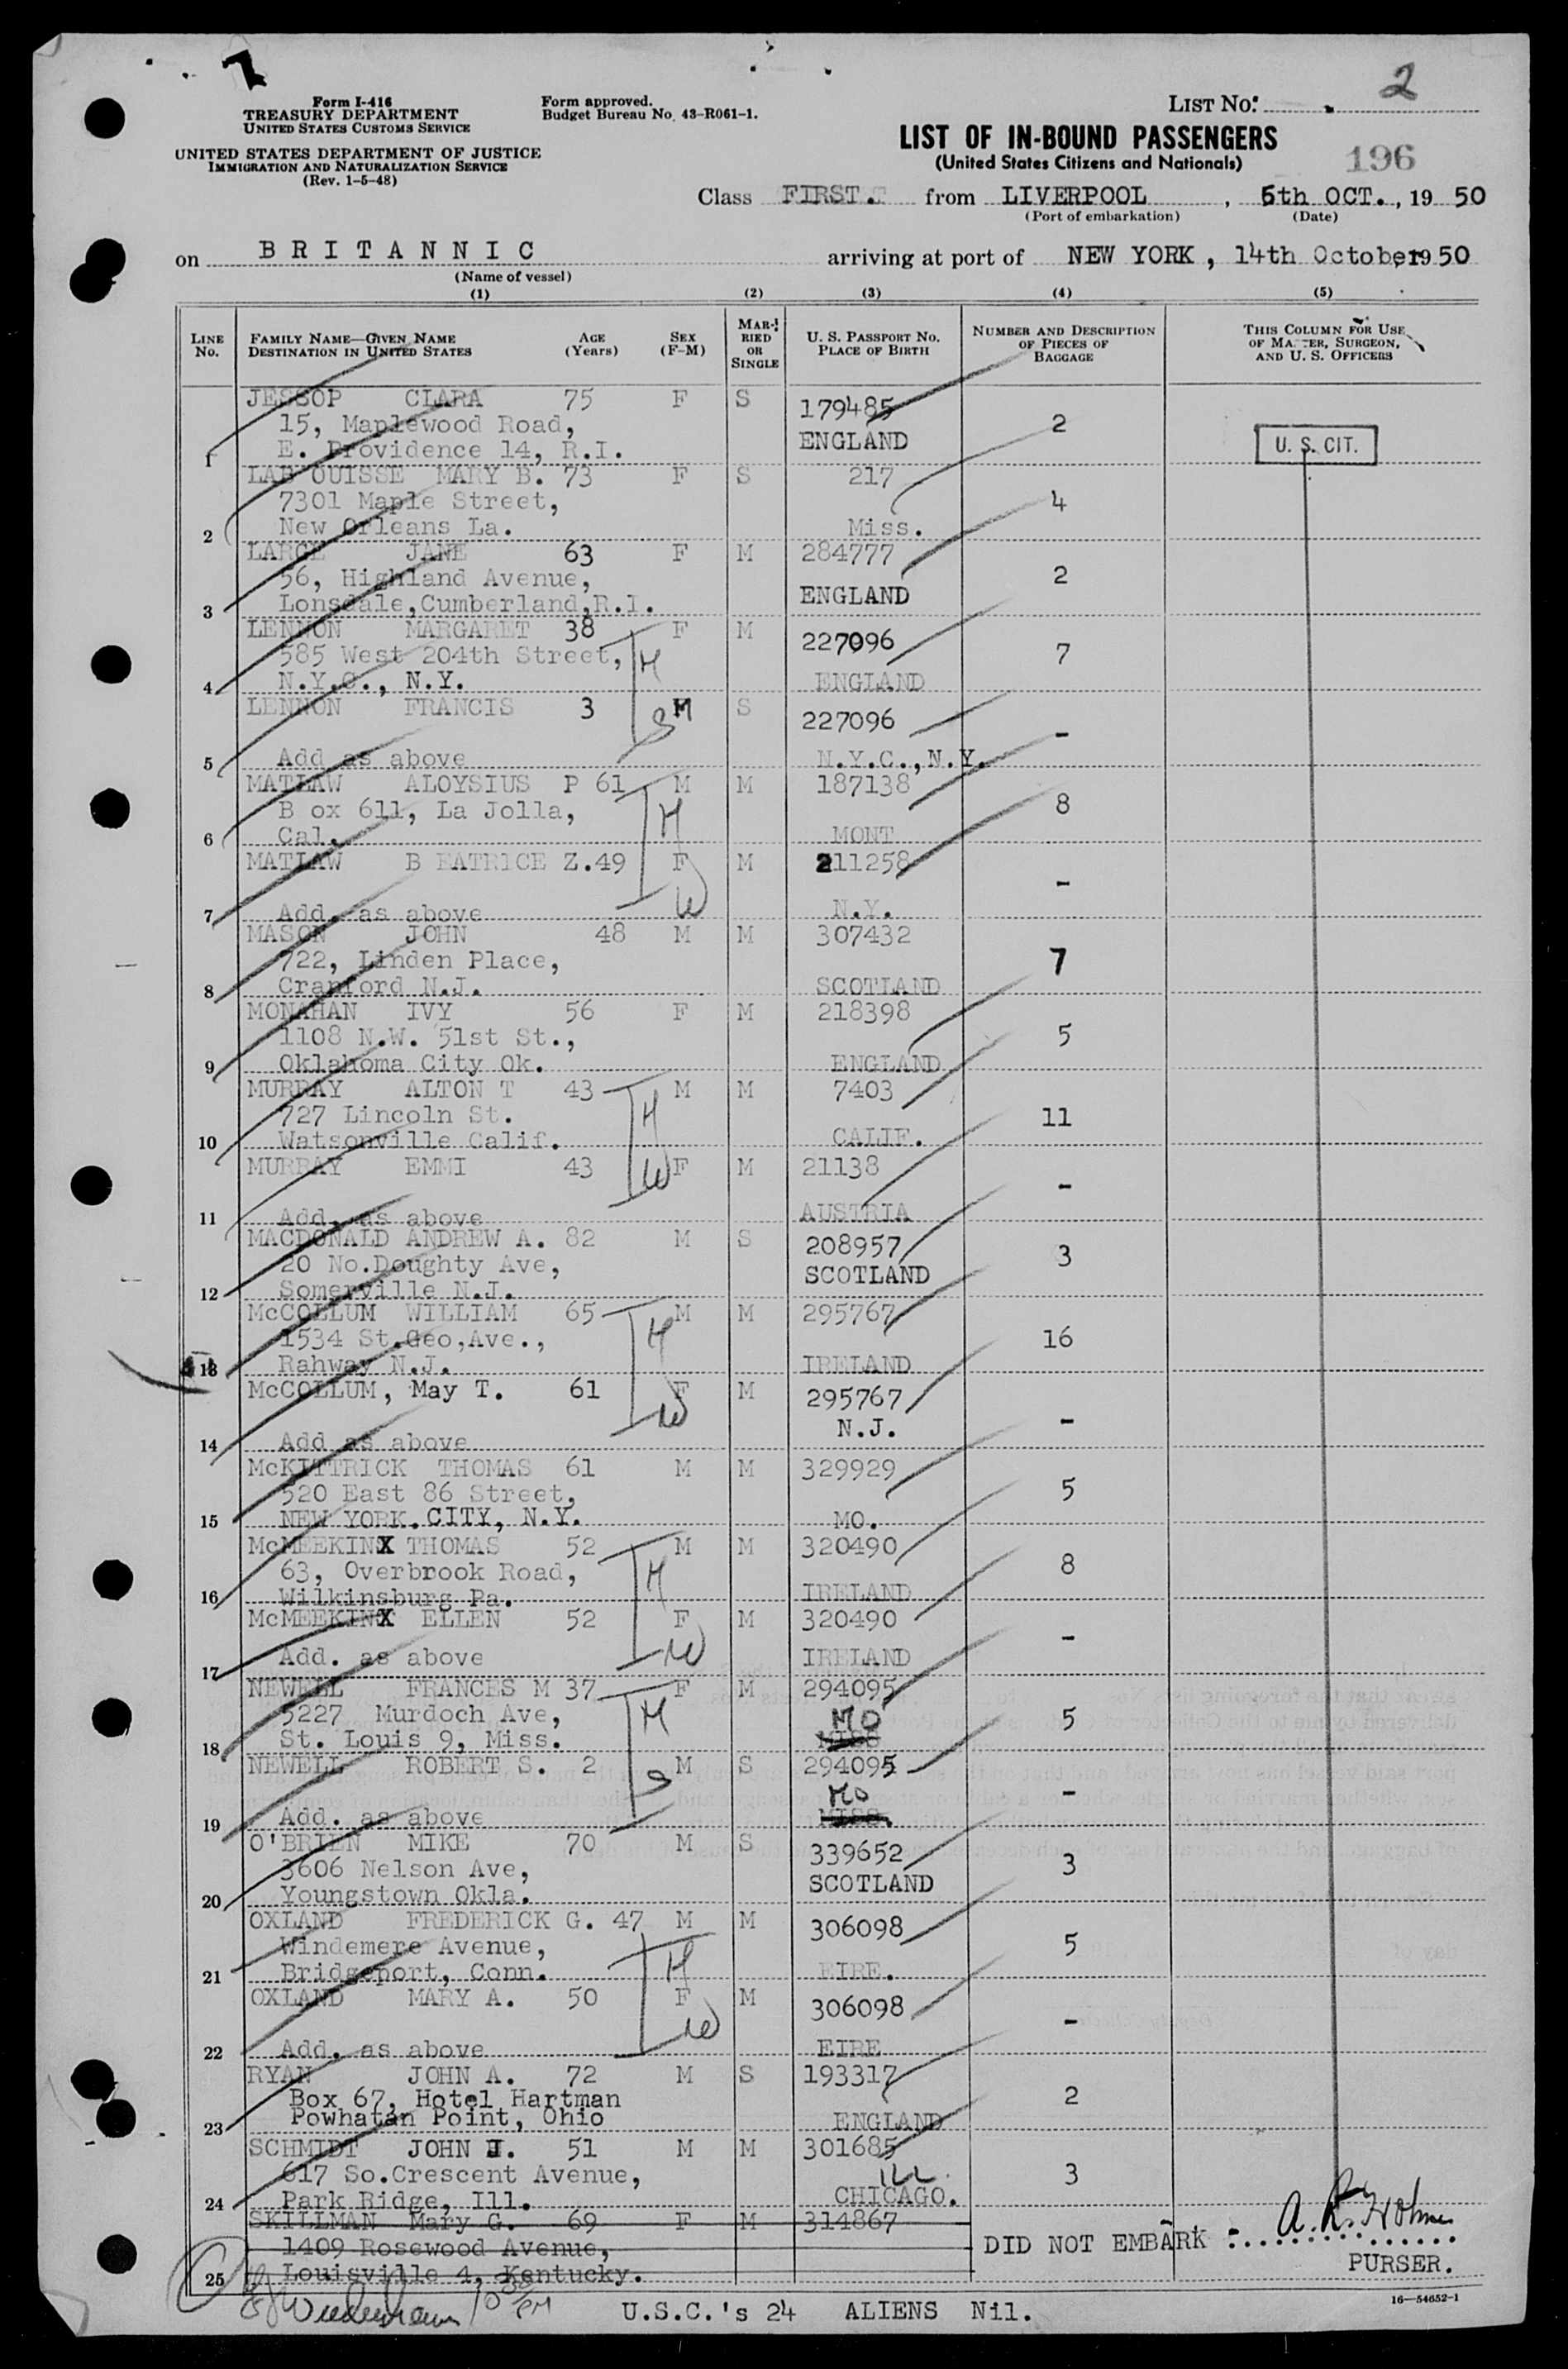 7
Form I-416
TREASURY DEPARTMENT
UNITED STATES CUSTOMS SERVICE
UNITED STATES DEPARTMENT OF JUSTICE
IMMIGRATION AND NATURALIZATION SERVICE
(Rev. 1-5-48)
Form approved.
Budget Bureau No. 43-R061-1.
LIST No. 2
LIST OF IN-BOUND PASSENGERS
(United States Citizens and Nationals)
196
Class FIRST. from LIVERPOOL, 6th OCT., 1950
(Port of embarkation) (Date)
on BRITANNIC arriving at port of NEW YORK, 14th October 1950
(Name of vessel)
(1) (2) (3) (4) (5)
LINE No. FAMILY NAME—GIVEN NAME DESTINATION IN UNITED STATES AGE (Years) SEX (F-M) MARRIED OR SINGLE U. S. PASSPORT No. PLACE OF BIRTH NUMBER AND DESCRIPTION OF PIECES OF BAGGAGE THIS COLUMN FOR USE OF MASTER, SURGEON, AND U. S. OFFICERS
JESSOP CLARA 75 F S 179485
15, Maplewood Road, ENGLAND 2
1 E. Providence 14, R.I. U. S. CIT.
LAB OUISSE MARY B. 73 F S 217
7301 Maple Street, 4
2 New Orleans La. Miss.
LARGE JANE 63 F M 284777
56, Highland Avenue, 2
3 Lonsdale, Cumberland, R.I. ENGLAND
LENNON MARGARET 38 F M 227096
585 West 204th Street, H 7
4 N.Y.C., N.Y. ENGLAND
LENNON FRANCIS 3 M S 227096
S -
5 Add as above N.Y.C., N.Y.
MATLAW ALOYSIUS P 61 M M 187138
B ox 611, La Jolla, H 8
6 Cal. MONT
MATLAW B EATRICE Z. 49 F M 211258
W -
7 Add. as above N.Y.
MASON JOHN 48 M M 307432
722, Linden Place, 7
8 Cranford N.J. SCOTLAND
MONAHAN IVY 56 F M 218398
1108 N.W. 51st St., 5
9 Oklahoma City Ok. ENGLAND
MURRAY ALTON T 43 M M 7403
727 Lincoln St. H 11
10 Watsonville Calif. CALIF.
MURRAY EMMI 43 W F M 21138
-
11 Add. as above AUSTRIA
MACDONALD ANDREW A. 82 M S 208957
20 No. Doughty Ave, SCOTLAND 3
12 Somerville N.J.
McCOLLUM WILLIAM 65 M M 295767
1534 St. Geo, Ave., H 16
13 Rahway N.J. IRELAND
McCOLLUM, May T. 61 F M 295767
W N.J. -
14 Add as above
McKITTRICK THOMAS 61 M M 329929
520 East 86 Street, 5
15 NEW YORK. CITY, N.Y. MO.
McMEEKINX THOMAS 52 M M 320490
63, Overbrook Road, H 8
16 Wilkinsburg Pa. IRELAND
McMEEKINX ELLEN 52 F M 320490
W -
17 Add. as above IRELAND
NEWELL FRANCES M 37 F M 294095
5227 Murdoch Ave, M MO 5
18 St. Louis 9, Miss. MISS
NEWELL ROBERT S. 2 M S 294095
S MO -
19 Add. as above MISS.
O'BRIEN MIKE 70 M S 339652
3606 Nelson Ave, SCOTLAND 3
20 Youngstown Okla.
OXLAND FREDERICK G. 47 M M 306098
Windemere Avenue, H 5
21 Bridgeport, Conn. EIRE.
OXLAND MARY A. 50 F M 306098
W -
22 Add. as above EIRE
RYAN JOHN A. 72 M S 193317
Box 67, Hotel Hartman 2
23 Powhatan Point, Ohio ENGLAND
SCHMIDT JOHN J. 51 M M 301685
617 So. Crescent Avenue, ILL. 3
24 Park Ridge, Ill. CHICAGO.
SKILLMAN Mary G. 69 F M 314867
1409 Rosewood Avenue, DID NOT EMBARK -
25 Louisville 4, Kentucky. PURSER.
PM
U.S.C.'s 24 ALIENS Nil.
16—54652-1